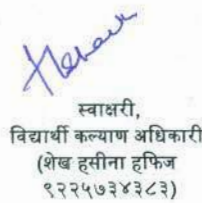 स्वाक्षरी,
विद्यार्थी कल्याण अधिकारी
(शेख हसीना हफिज
९२२५७३४३८३)